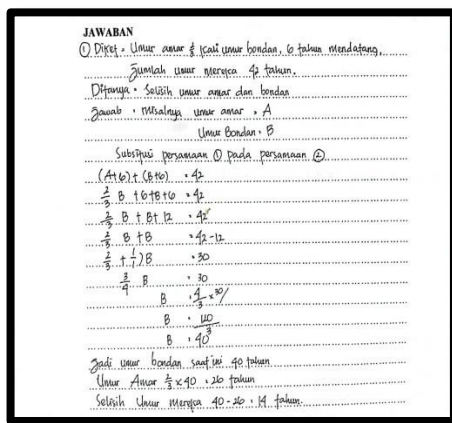 JAWABAN
① Diket = Umur amar ⅔ kali umur bondan, 6 tahun mendatang,
Jumlah umur mereka 42 tahun.
Ditanya = Selisih umur amar dan bondan
Jawab : misalnya umur amar = A
Umur Bondan = B
Subsitusi persamaan ① pada persamaan ②
(A+6) + (B+6) = 42
2/3 B + 6+B+6 = 42
2/3 B + B+ 12 = 42
2/3 B + B = 42-12
2/3 + 1/1) B = 30
3/4 B = 30
B = 4/3 × 30/
B =
B = 40
Jadi umur bondan saat ini 40 tahun
Umur Amar 2/3 × 40 = 26 tahun
Selisih Umur mereka 40 - 26 = 14 tahun.